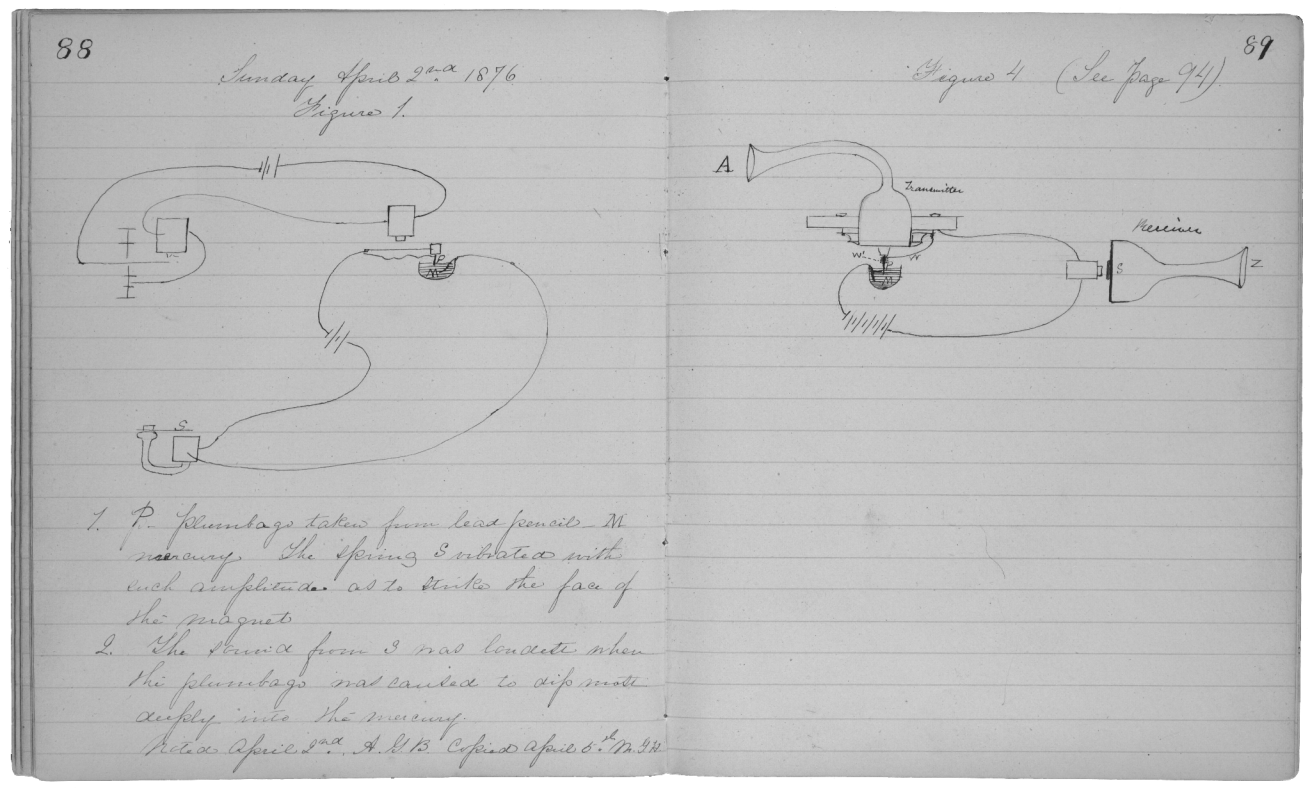 88
Sunday April 2nd 1876
Figure 1.
P
M
S
1. P. plumbago taken from lead pencil - M
mercury. The spring S vibrated with
such amplitude as to strike the face of
the magnet
2. The sound from S was loudest when
the plumbago was caused to dip most
deeply into the mercury.
Noted April 2nd. A.G.B. Copied April 5th M.G.H.
89
Figure 4 (See Page 94)
A
Transmitter
Receiver
W
W
P
M
S
Z